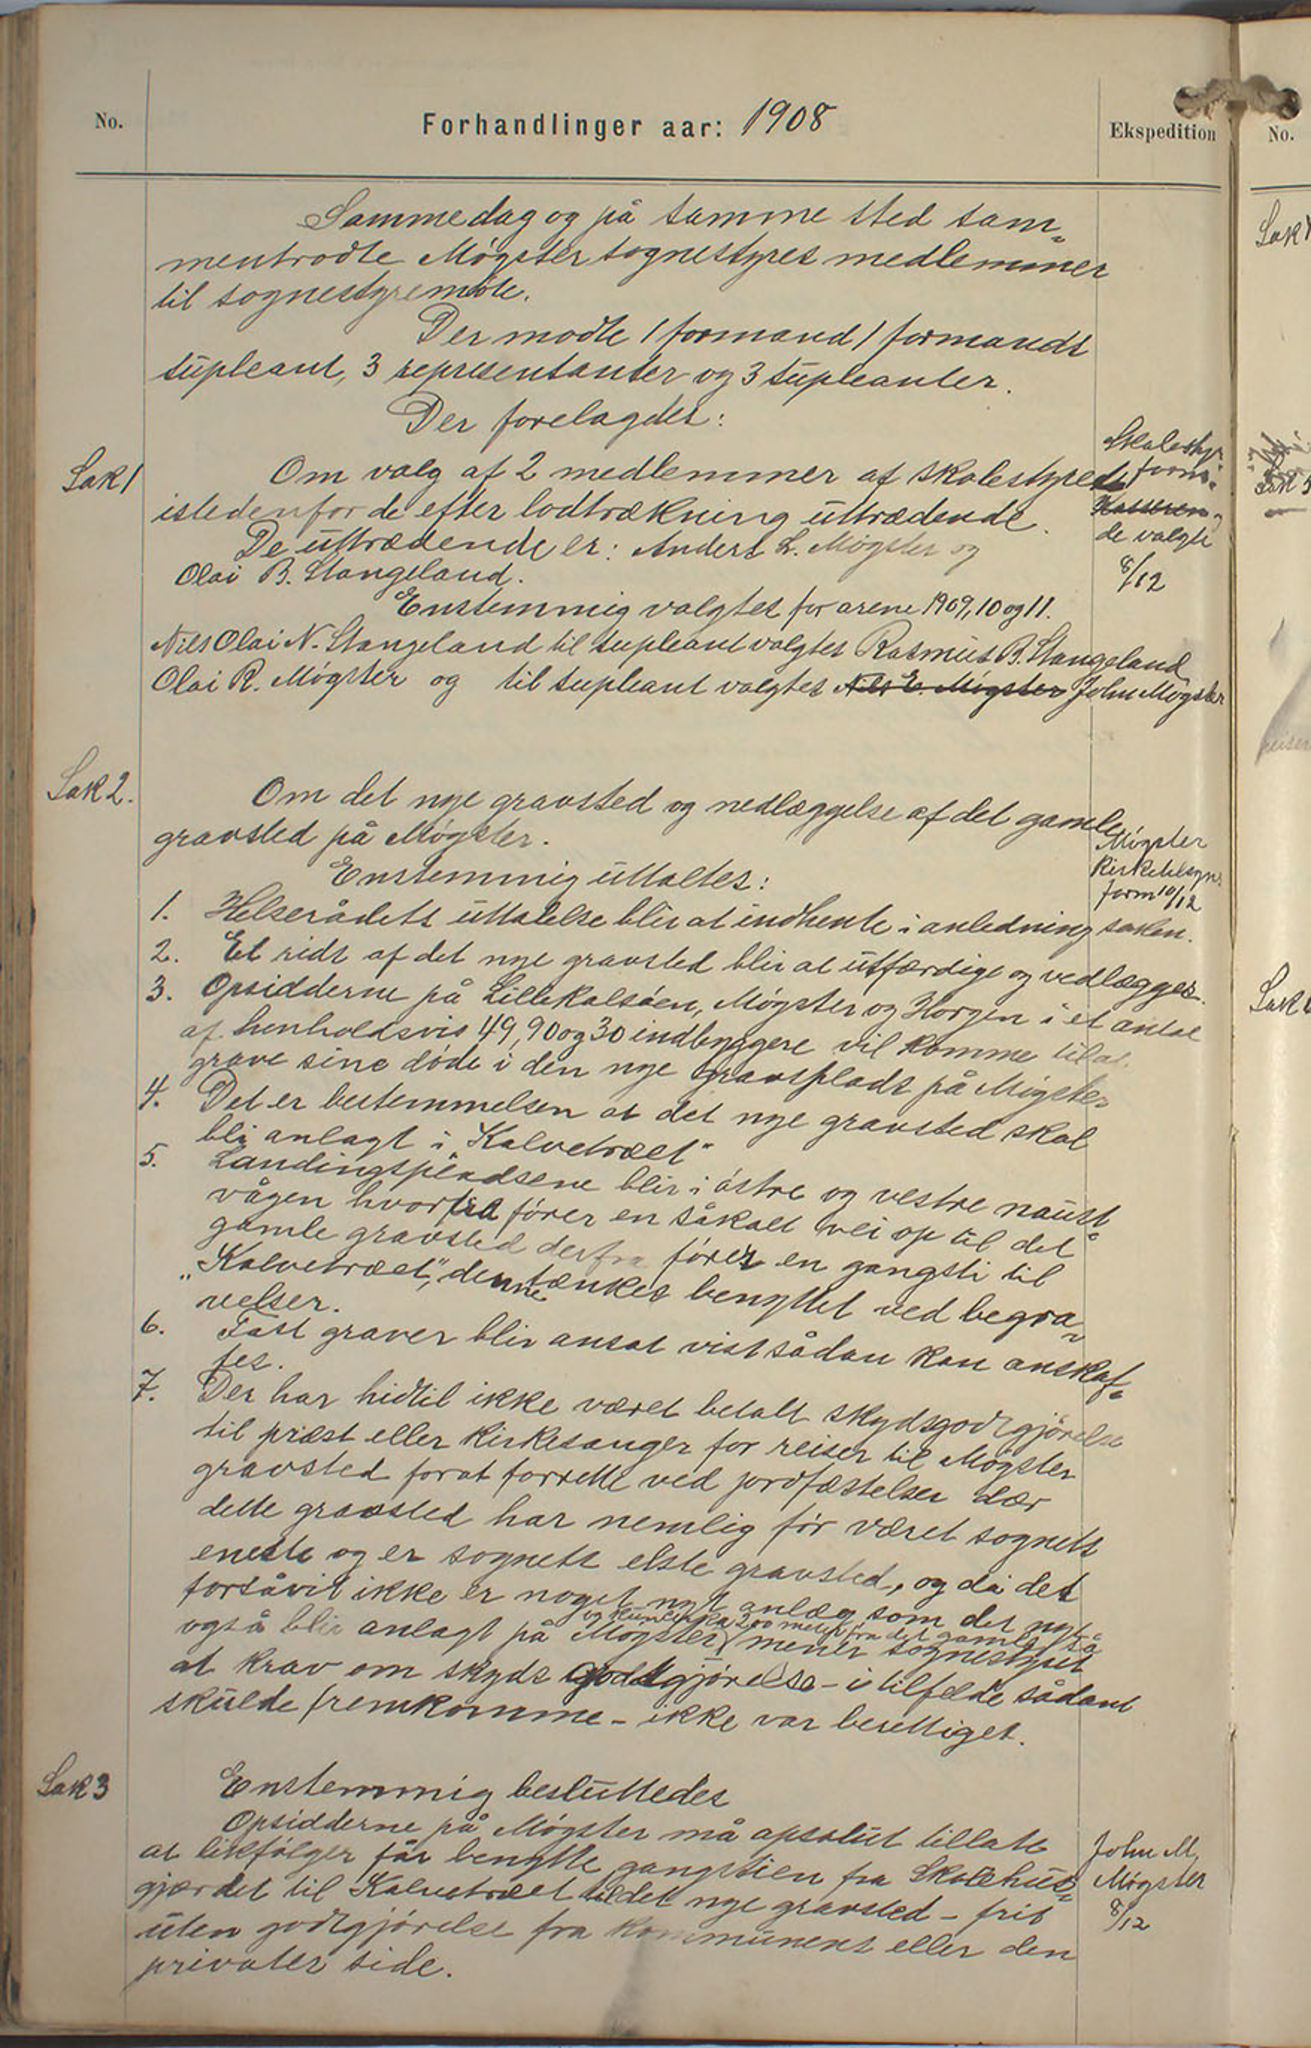 No.
Forhandlinger aar: 1908
Ekspedition
No.
Samme dag og på samme sted sam„
mentrådte Møgster sognestyres medlemmer
til sognestyremøte.
Der mødte 1 formand 1 formands
supleant, 3 representanter og 3 supleanter.
Der forelagdes:
Sak 1
Om valg af 2 medlemmer af skolestyret
istedenfor de efter lodtrækning uttrædende.
De uttrædende er: Anders L. Møgster og
Olai B. Stangeland.
Enstemmig valgtes for årene 1909, 10 og 11.
Nils Olai N. Stangeland til supleant valgtes Rasmus B. Stangeland
Olai R. Møgster og til supleant valgtes Nils E. Møgster John Møgster
Skolesty
form.
Kasseren
de valgte
8/12
Sak 2.
Om det nye gravsted og nedlæggelse af det gamle
gravsted på Møgster.
Enstemmig uttaltes:
Møgster
Kirketilsyns
form 10/12
1. Helserådets uttalelse blir at indhente i anledning saken.
2. Et rids af det nye gravsted blir at utfærdige og vedlægges.
3. Opsidderne på Lillekalsøen, Møgster og Horgen i et antal
af henholdsvis 49, 90 og 30 indbyggere vil komme til at
grave sine døde i den nye gravplads på Møgster
4. Det er bestemmelsen at det nye gravsted skal
bli anlagt i Kalvetræet"
5. Landingspladsene blir i østre og vestre naust„
vågen hvorfra fører en såkalt vei op til det
gamle gravsted derfra fører en gangsti til
„Kalvetræet", denne tænkes benyttet ved begra„
velser.
6. Fast graver blir ansat vist sådan kan anskaf„
fes.
7. Der har hidtil ikke været betalt skydsgodtgjørelse
til præst eller kirkesanger for reiser til Møgster
gravsted forat forrette ved jordfæstelser der
dette gravsted har nemlig før været sognets
eneste og er sognets elste gravsted, og då det
forsåvit ikke er noget nyt anlæg som det nye
også blir anlagt på Møgster og kun ca 200 meter fra det gamle så mener sognestyret
at krav om skyds godtgjørelse – i tilfelde sådant
skulde fremkomme – ikke var berettiget.
Sak 3
Enstemmig besluttedes
Opsidderne på Møgster må apsolut tillate
at likfølger får benytte gangstien fra Skolehus„
gjærdet til Kalvetræet til det nye gravsted – frit
uten godtgjørelse fra kommunens eller den
privates side.
John M.
Møgster
8/12
Sak
Sak